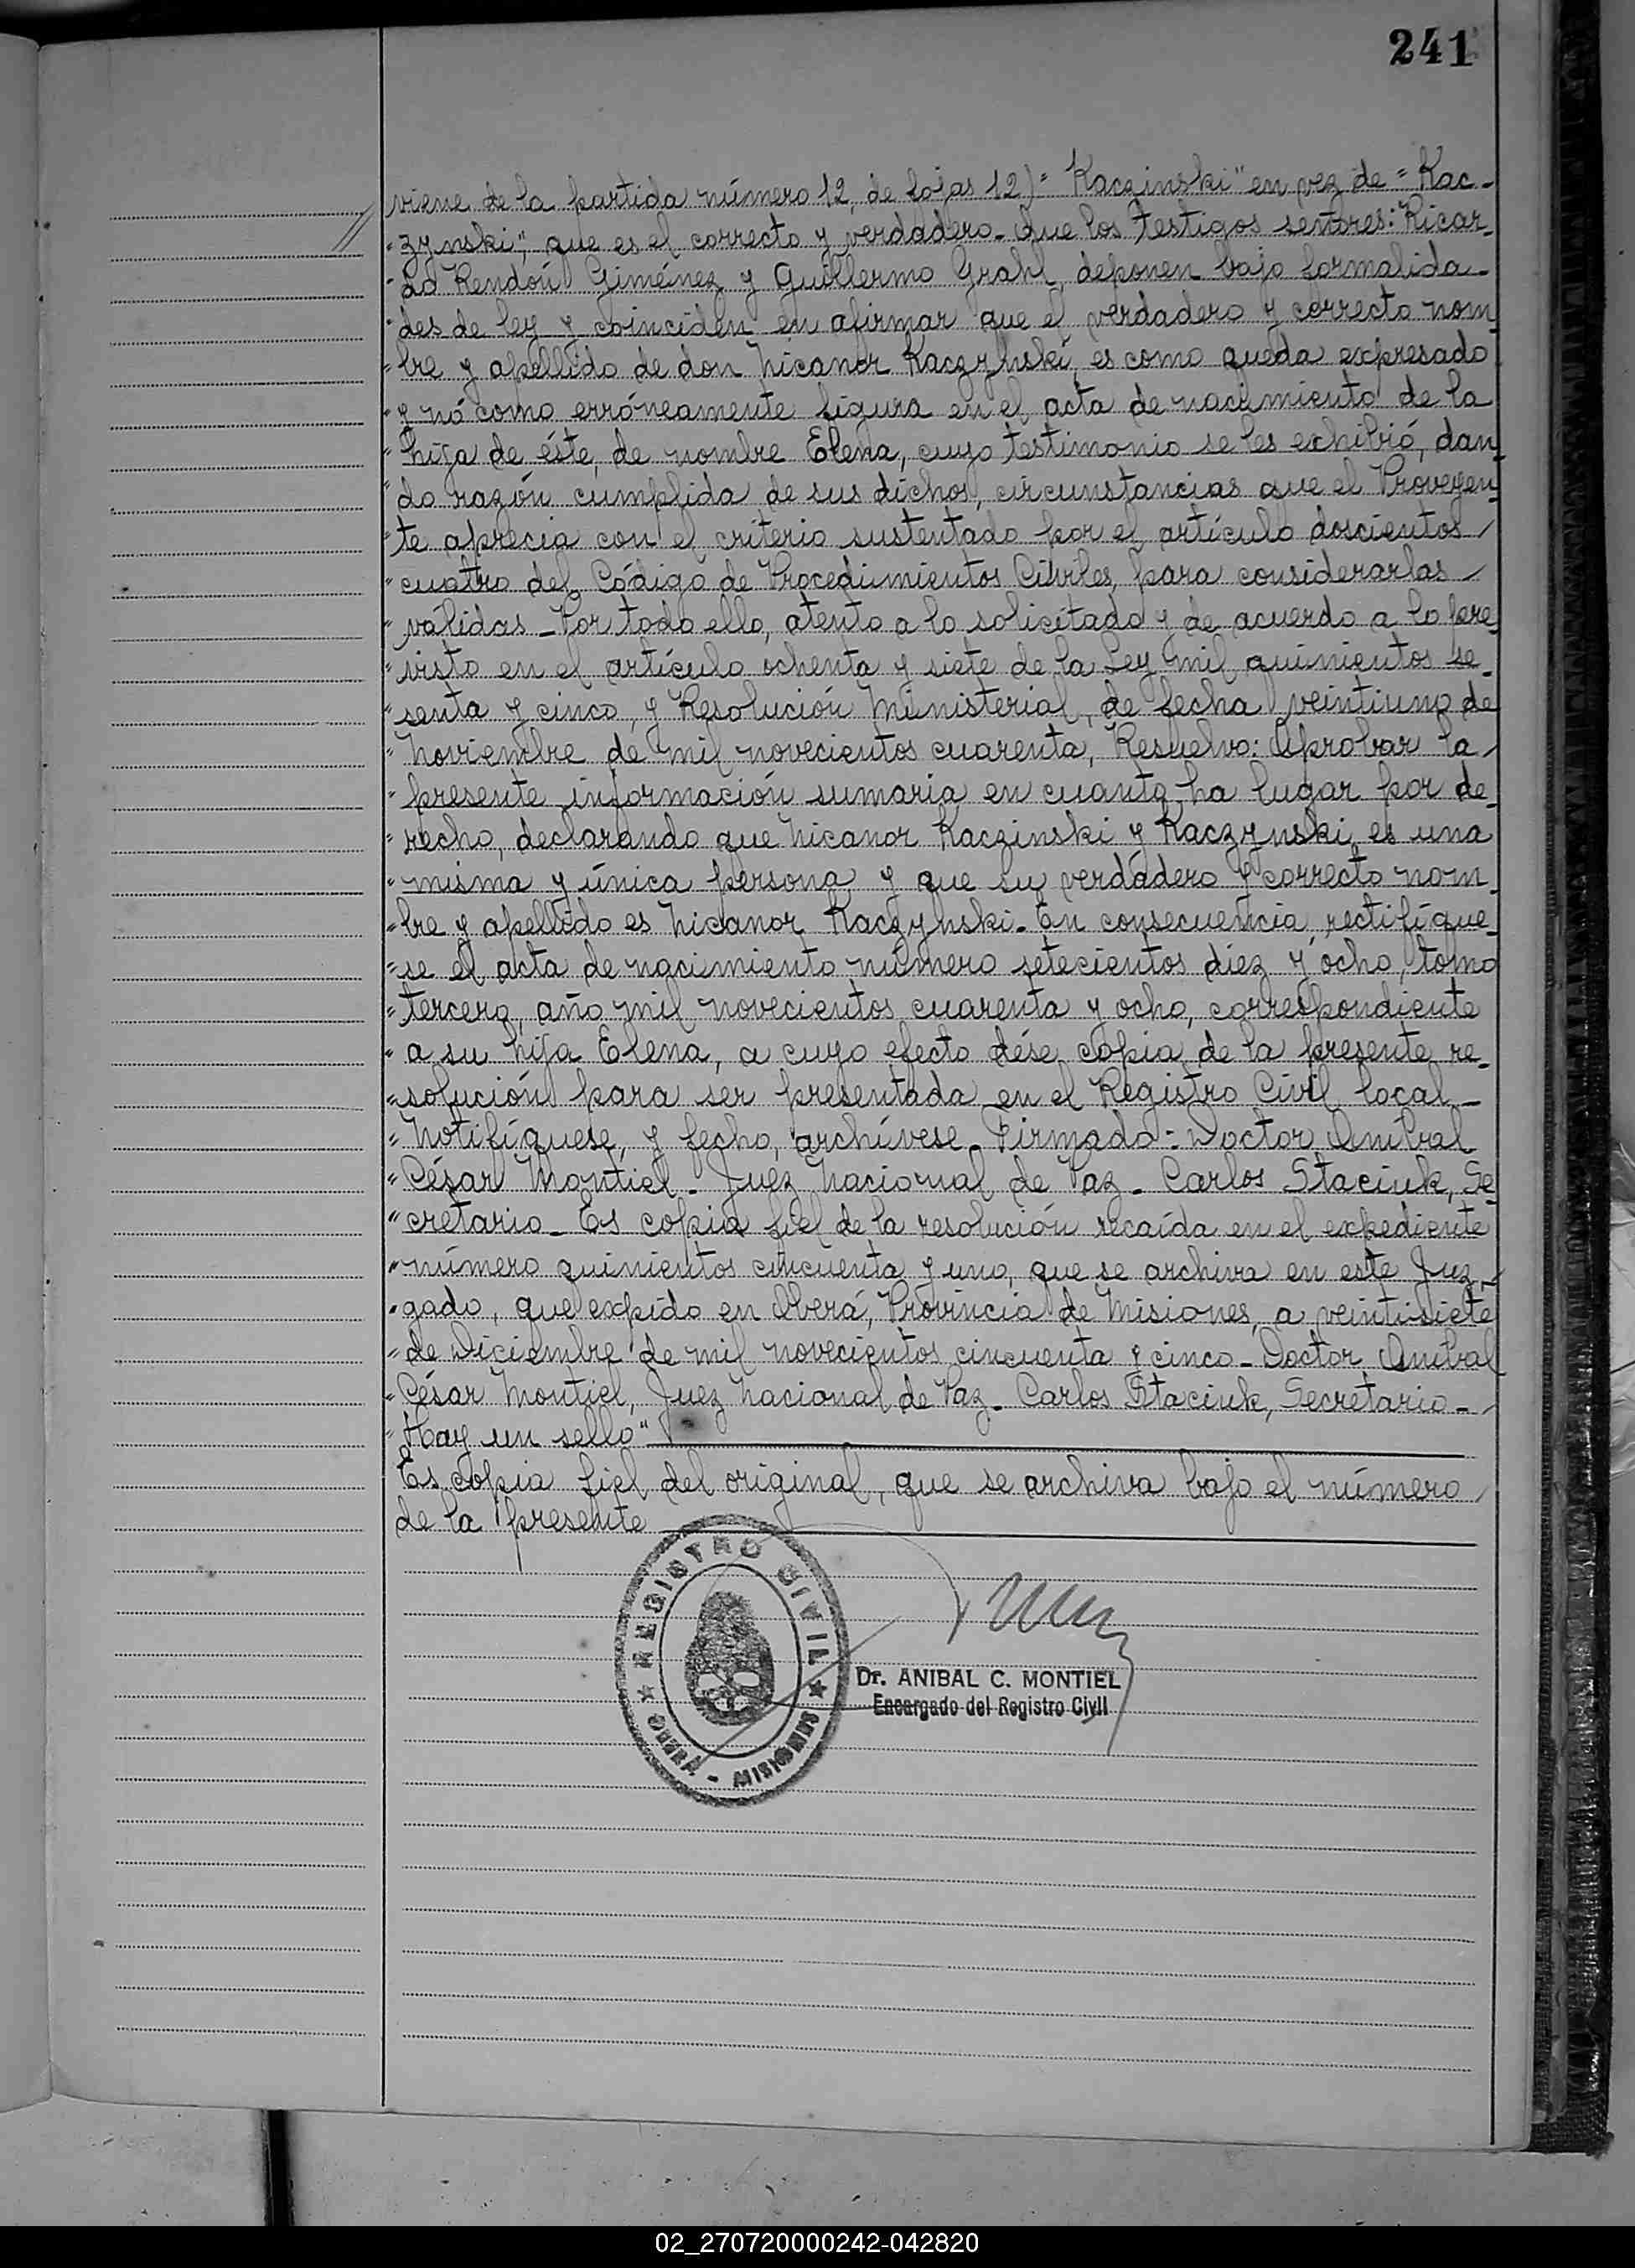 241
viene de la partida número 12, de fojas 12) "Kaczinski" en vez de "Kac-
"zynski", que es el correcto y verdadero. Que los testigos señores: Ricar-
"do Rendón Giménez y Guillermo Grahl, deponen bajo formalida-
"des de ley y coinciden en afirmar que el verdadero y correcto nom-
"bre y apellido de don Nicanor Kaczynski, es como queda expresado
"y nó como erróneamente figura en el acta de nacimiento de la
"hija de éste, de nombre Elena, cuyo testimonio se les exhibió, dan-
"do razón cumplida de sus dichos, circunstancias que el Proveyen-
"te aprecia con el criterio sustentado por el artículo doscientos
"cuatro del Código de Procedimientos Civiles, para considerarlas
"válidas_Por todo ello, atento a lo solicitado y de acuerdo a lo pre-
"visto en el artículo ochenta y siete de la Ley mil quinientos se-
"senta y cinco, y Resolución Ministerial, de fecha veintiuno de
"Noviembre de mil novecientos cuarenta, Resuelvo: Aprobar la
"presente información sumaria en cuanto ha lugar por de-
"recho, declarando que Nicanor Kaczinski y Kaczynski, es una
"misma y única persona y que su verdadero y correcto nom-
"bre y apellido es Nicanor Kaczynski. En consecuencia, rectifíque-
"se el acta de nacimiento número setecientos diez y ocho, tomo
"tercero, año mil novecientos cuarenta y ocho, correspondiente
"a su hija Elena, a cuyo efecto dése copia de la presente re-
"solución para ser presentada en el Registro Civil local_
"Notifíquese, y fecho, archívese. Firmado: Doctor Anibal
"César Montiel. Juez Nacional de Paz. Carlos Staciuk, Se-
"cretario_ Es copia fiel de la resolución recaída en el expediente
"número quinientos cincuenta y uno, que se archiva en este Juz-
"gado, que expido en Oberá, Provincia de Misiones, a veintisiete
"de Diciembre de mil novecientos cincuenta y cinco_Doctor Anibal
"César Montiel, Juez Nacional de Paz. Carlos Staciuk, Secretario_
"Hay un sello"
Es copia fiel del original, que se archiva bajo el número
de la presente
REGISTRO CIVIL
OBERÁ - MISIONES
Dr. ANIBAL C. MONTIEL
Encargado del Registro Civil
02_270720000242-042820